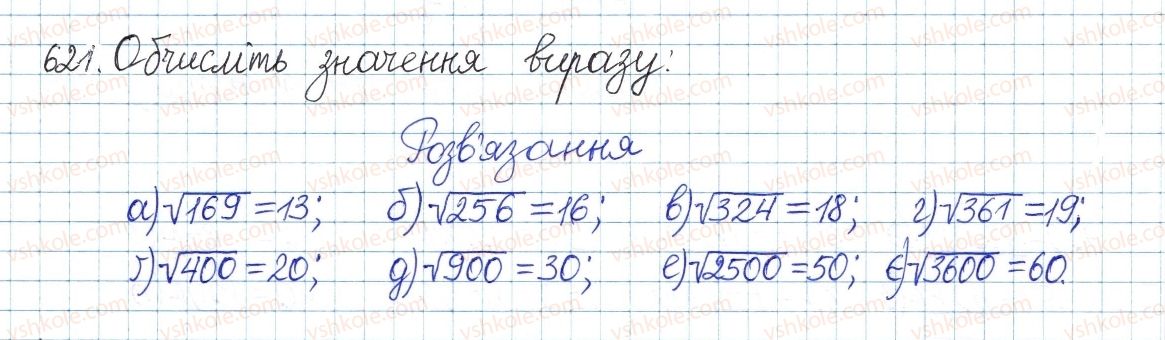 621. Обчисліть значення виразу:
Розв'язання
а) √169 = 13; б) √256 = 16; в) √324 = 18; г) √361 = 19;
ґ) √400 = 20; д) √900 = 30; е) √2500 = 50; є) √3600 = 60.